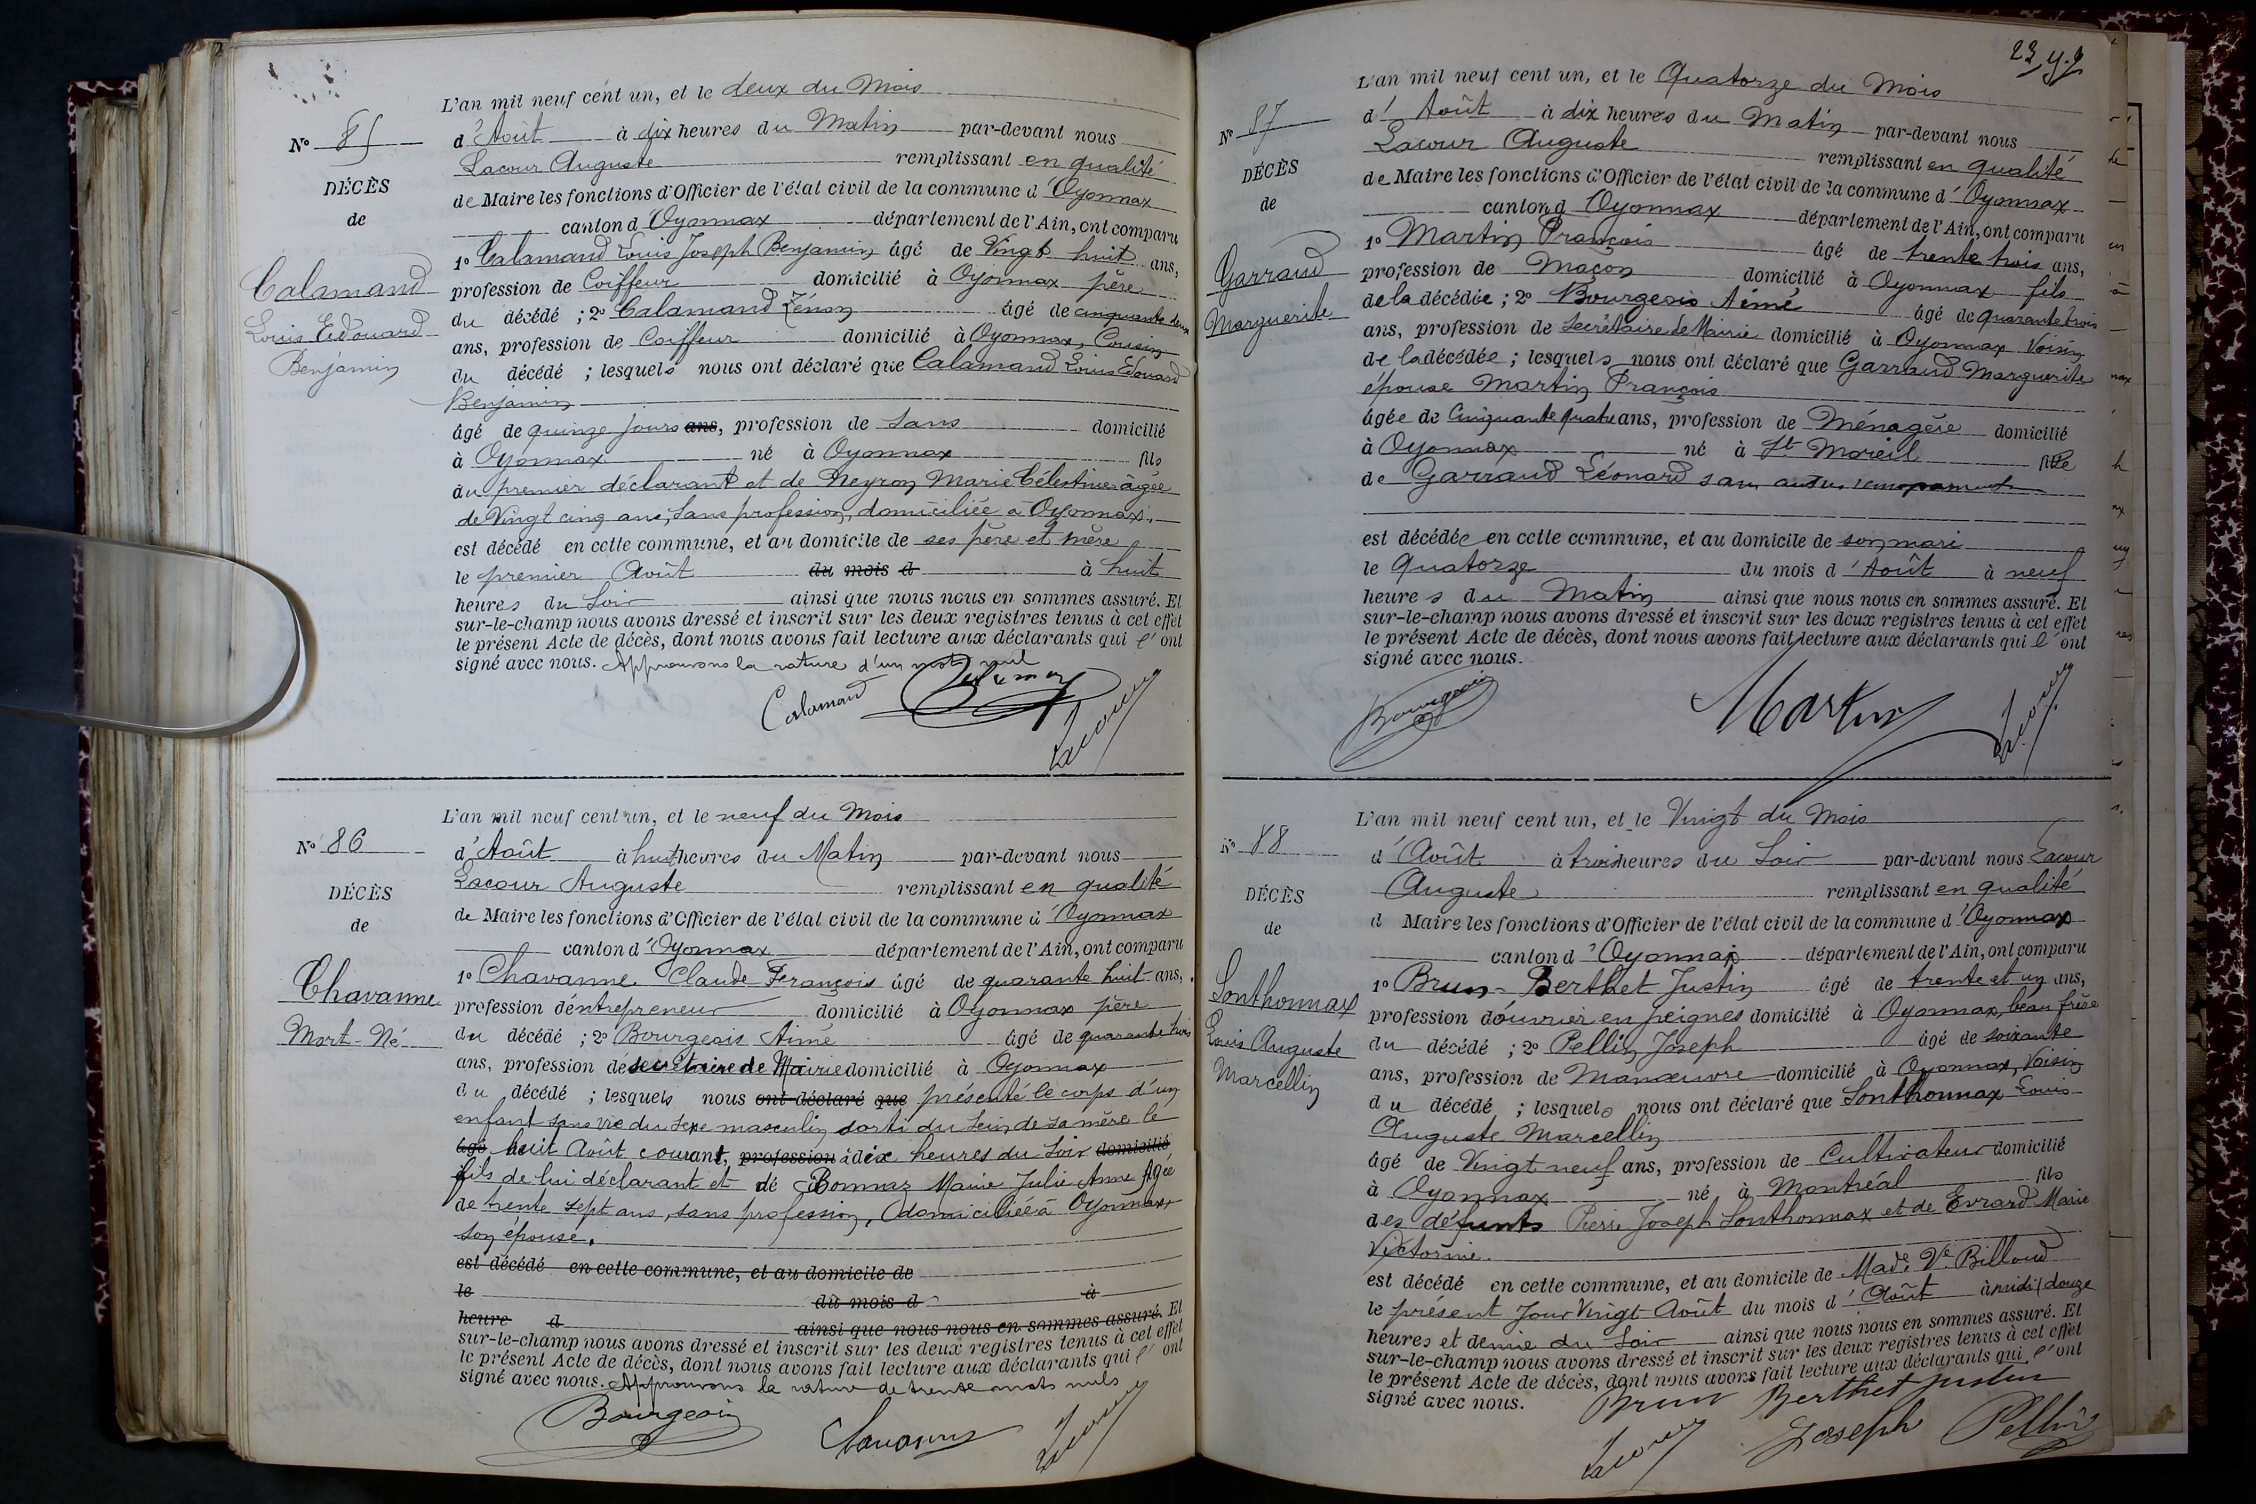 L'an mil neuf cent un, et le deux du Mois
No 85
d'Août à dix heures du Matin par-devant nous
Lacour Auguste remplissant en qualité
DÉCÈS
de Maire les fonctions d'Officier de l'état civil de la commune d'Oyonnax
de
canton d'Oyonnax département de l'Ain, ont comparu
1o Calamand Louis Joseph Benjamin âgé de Vingt huit ans,
Calamand
profession de Coiffeur domicilié à Oyonnax père
Louis Edouard
du décédé ; 2o Calamand Zénon âgé de cinquante deux
Benjamin
ans, profession de Coiffeur domicilié à Oyonnax, Cousin
du décédé ; lesquels nous ont déclaré que Calamand Louis Edouard
Benjamin
âgé de quinze jours ans, profession de sans domicilié
à Oyonnax né à Oyonnax fils
du premier déclarant et de Neyron Marie Célestine âgée
de Vingt cinq ans, sans profession, domiciliée à Oyonnax.
est décédé en cette commune, et au domicile de ses père et mère
le premier Août du mois d à huit
heures du Soir ainsi que nous nous en sommes assuré. Et
sur-le-champ nous avons dressé et inscrit sur les deux registres tenus à cet effet
le présent Acte de décès, dont nous avons fait lecture aux déclarants qui l'ont
signé avec nous. Approuvons la rature d'un mot nul
Calamand
Lacour
L'an mil neuf cent un, et le neuf du Mois
No 86
d'Août à huit heures du Matin par-devant nous
Lacour Auguste remplissant en qualité
DÉCÈS
de Maire les fonctions d'Officier de l'état civil de la commune d'Oyonnax
de
canton d'Oyonnax département de l'Ain, ont comparu
1o Chavanne Claude François âgé de quarante huit ans,
Chavanne
profession d'entrepreneur domicilié à Oyonnax père
Mort-Né
du décédé ; 2o Bourgeois Aimé âgé de quarante trois
ans, profession de secrétaire de Mairie domicilié à Oyonnax
du décédé ; lesquels nous ont déclaré que présenté le corps d'un
enfant sans vie du sexe masculin sorti du sein de sa mère le
âgé huit Août courant, profession à dix heures du Soir domicilié
fils de lui déclarant et de Bonnaz Marie Julie Anne âgée
de trente sept ans, sans profession, domiciliée à Oyonnax,
son épouse.
est décédé en cette commune, et au domicile de
le du mois d à
heure d ainsi que nous nous en sommes assuré. Et
sur-le-champ nous avons dressé et inscrit sur les deux registres tenus à cet effet
le présent Acte de décès, dont nous avons fait lecture aux déclarants qui l'ont
signé avec nous. Approuvons la rature de trente mots nuls
Bourgeois Chavanne Lacour
23
L'an mil neuf cent un, et le Quatorze du Mois
No 87
d'Août à dix heures du Matin par-devant nous
Lacour Auguste remplissant en qualité
DÉCÈS
de Maire les fonctions d'Officier de l'état civil de la commune d'Oyonnax
de
canton d Oyonnax département de l'Ain, ont comparu
1o Martin François âgé de trente trois ans,
Garraud
profession de Maçon domicilié à Oyonnax fils
Marguerite
de la décédée ; 2o Bourgeois Aimé âgé de quarante trois
ans, profession de Secrétaire de Mairie domicilié à Oyonnax Voisin
de la décédée ; lesquels nous ont déclaré que Garraud Marguerite
épouse Martin François
âgée de Cinquante quatre ans, profession de Ménagère domicilié
à Oyonnax né à St Moreil fille
de Garraud Léonard sans autres renseignements
est décédée en cette commune, et au domicile de son mari
le Quatorze du mois d'Août à neuf
heures du Matin ainsi que nous nous en sommes assuré. Et
sur-le-champ nous avons dressé et inscrit sur les deux registres tenus à cet effet
le présent Acte de décès, dont nous avons fait lecture aux déclarants qui l'ont
signé avec nous.
Bourgeois Martin Lacour
L'an mil neuf cent un, et le Vingt du Mois
No 88
d'Août à trois heures du Soir par-devant nous Lacour
Auguste remplissant en qualité
DÉCÈS
d Maire les fonctions d'Officier de l'état civil de la commune d'Oyonnax
de
canton d'Oyonnax département de l'Ain, ont comparu
1o Brun-Berthet Justin âgé de trente et un ans,
Sonthonnax
profession d'ouvrier en peignes domicilié à Oyonnax, beau frère
Louis Auguste
du décédé ; 2o Pellin Joseph âgé de soixante
Marcellin
ans, profession de Manœuvre domicilié à Oyonnax, Voisin
du décédé ; lesquels nous ont déclaré que Sonthonnax Louis
Auguste Marcellin
âgé de Vingt neuf ans, profession de Cultivateur domicilié
à Oyonnax né à Montréal fils
des défunts Pierre Joseph Sonthonnax et de Evrard Marie
Victorine
est décédé en cette commune, et au domicile de Made Ve Billoud
le présent Jour Vingt Août du mois d'Août à midi douze
heures et demie du Soir ainsi que nous nous en sommes assuré. Et
sur-le-champ nous avons dressé et inscrit sur les deux registres tenus à cet effet
le présent Acte de décès, dont nous avons fait lecture aux déclarants qui l'ont
signé avec nous. Brun Berthet Justin
Lacour Joseph Pellin